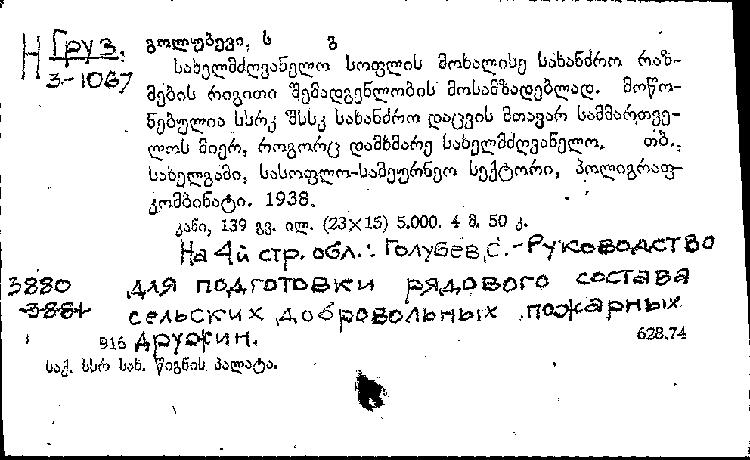 Н Груз. გოლუბევი, ს გ
3-1067 სახელმძღვანელო სოფლის მოხალისე სახანძრო რაზ-
მების რიგითი შემადგენლობის მოსამზადებლად. მოწო-
ნებულია სსრკ შსსკ სახანძრო დაცვის მთავარ სამმართვე-
ლოს მიერ, როგორც დამხმარე სახელმძღვანელო. თბ.,
სახელგამი, სასოფლო-სამეურნეო სექტორი, პოლიგრაფ-
კომბინატი. 1938.
კანი, 139 გვ. ილ. (23×15) 5.000. 4 მ. 50 კ.
На 4й стр. обл.: Голубев, С. - Руководство
3880 для подготовки рядового состава
3881 сельских добровольных пожарных
916 дружин. 628.74
საქ. სსრ სახ. წიგნის პალატა.